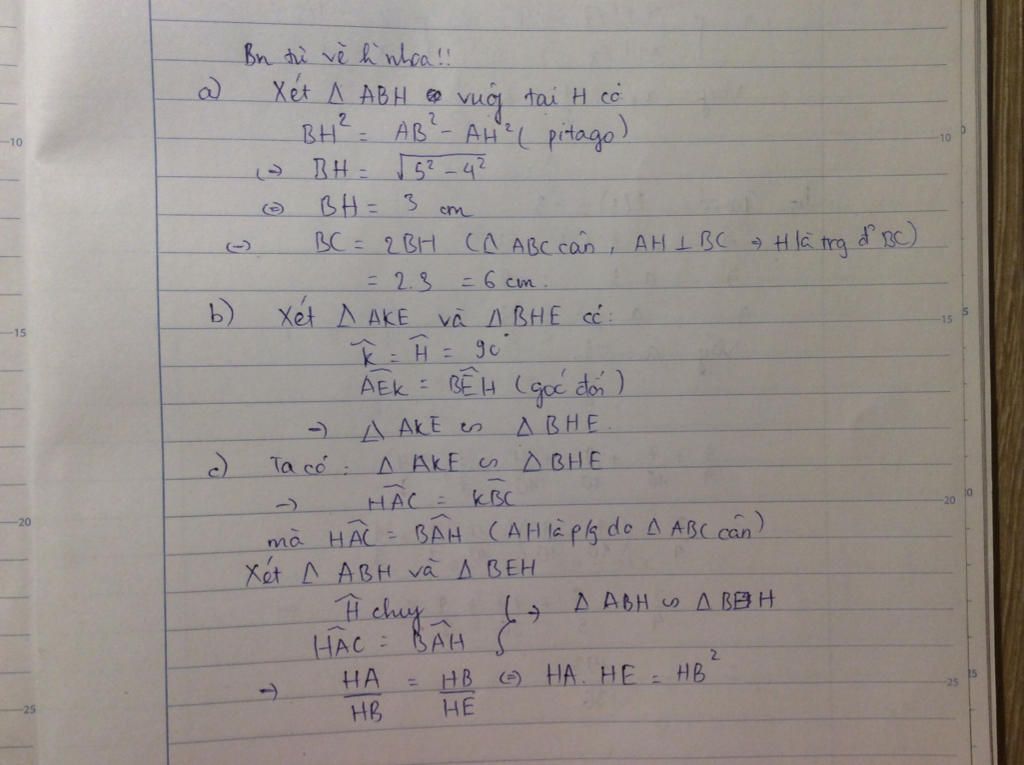 Bn tự vẽ hình nhoa!!
a) Xét Δ ABH vuôg tại H có
BH² = AB² - AH² ( pitago)
(=) BH = √5² - 4²
(=) BH = 3 cm
(=) BC = 2BH (Δ ABC cân, AH ⊥ BC → H là trg đ' BC)
= 2.3 = 6 cm.
b) Xét Δ AKE và Δ BHE có:
K̂ = Ĥ = 90°
AÊK = BÊH (góc đối)
→ Δ AKE ∽ Δ BHE.
c) Ta có: Δ AKE ∽ Δ BHE
→ HÂC = KB̂C
mà HÂC = BÂH (AH là p/g do Δ ABC cân)
Xét Δ ABH và Δ BEH
Ĥ chug } → Δ ABH ∽ Δ BEH
HÂC = BÂH
→ HA/HB = HB/HE (=) HA. HE = HB²
10
15
20
25
10
15
20
25